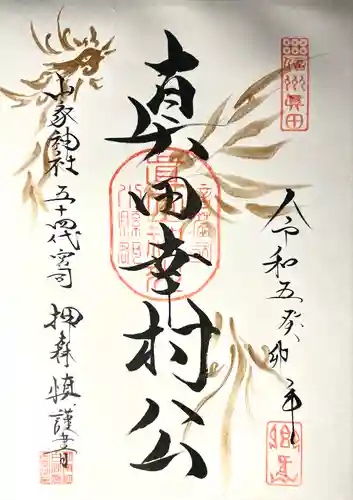 令和五癸卯年
真田幸村公
山家神社 五十四代宮司 押森慎謹書